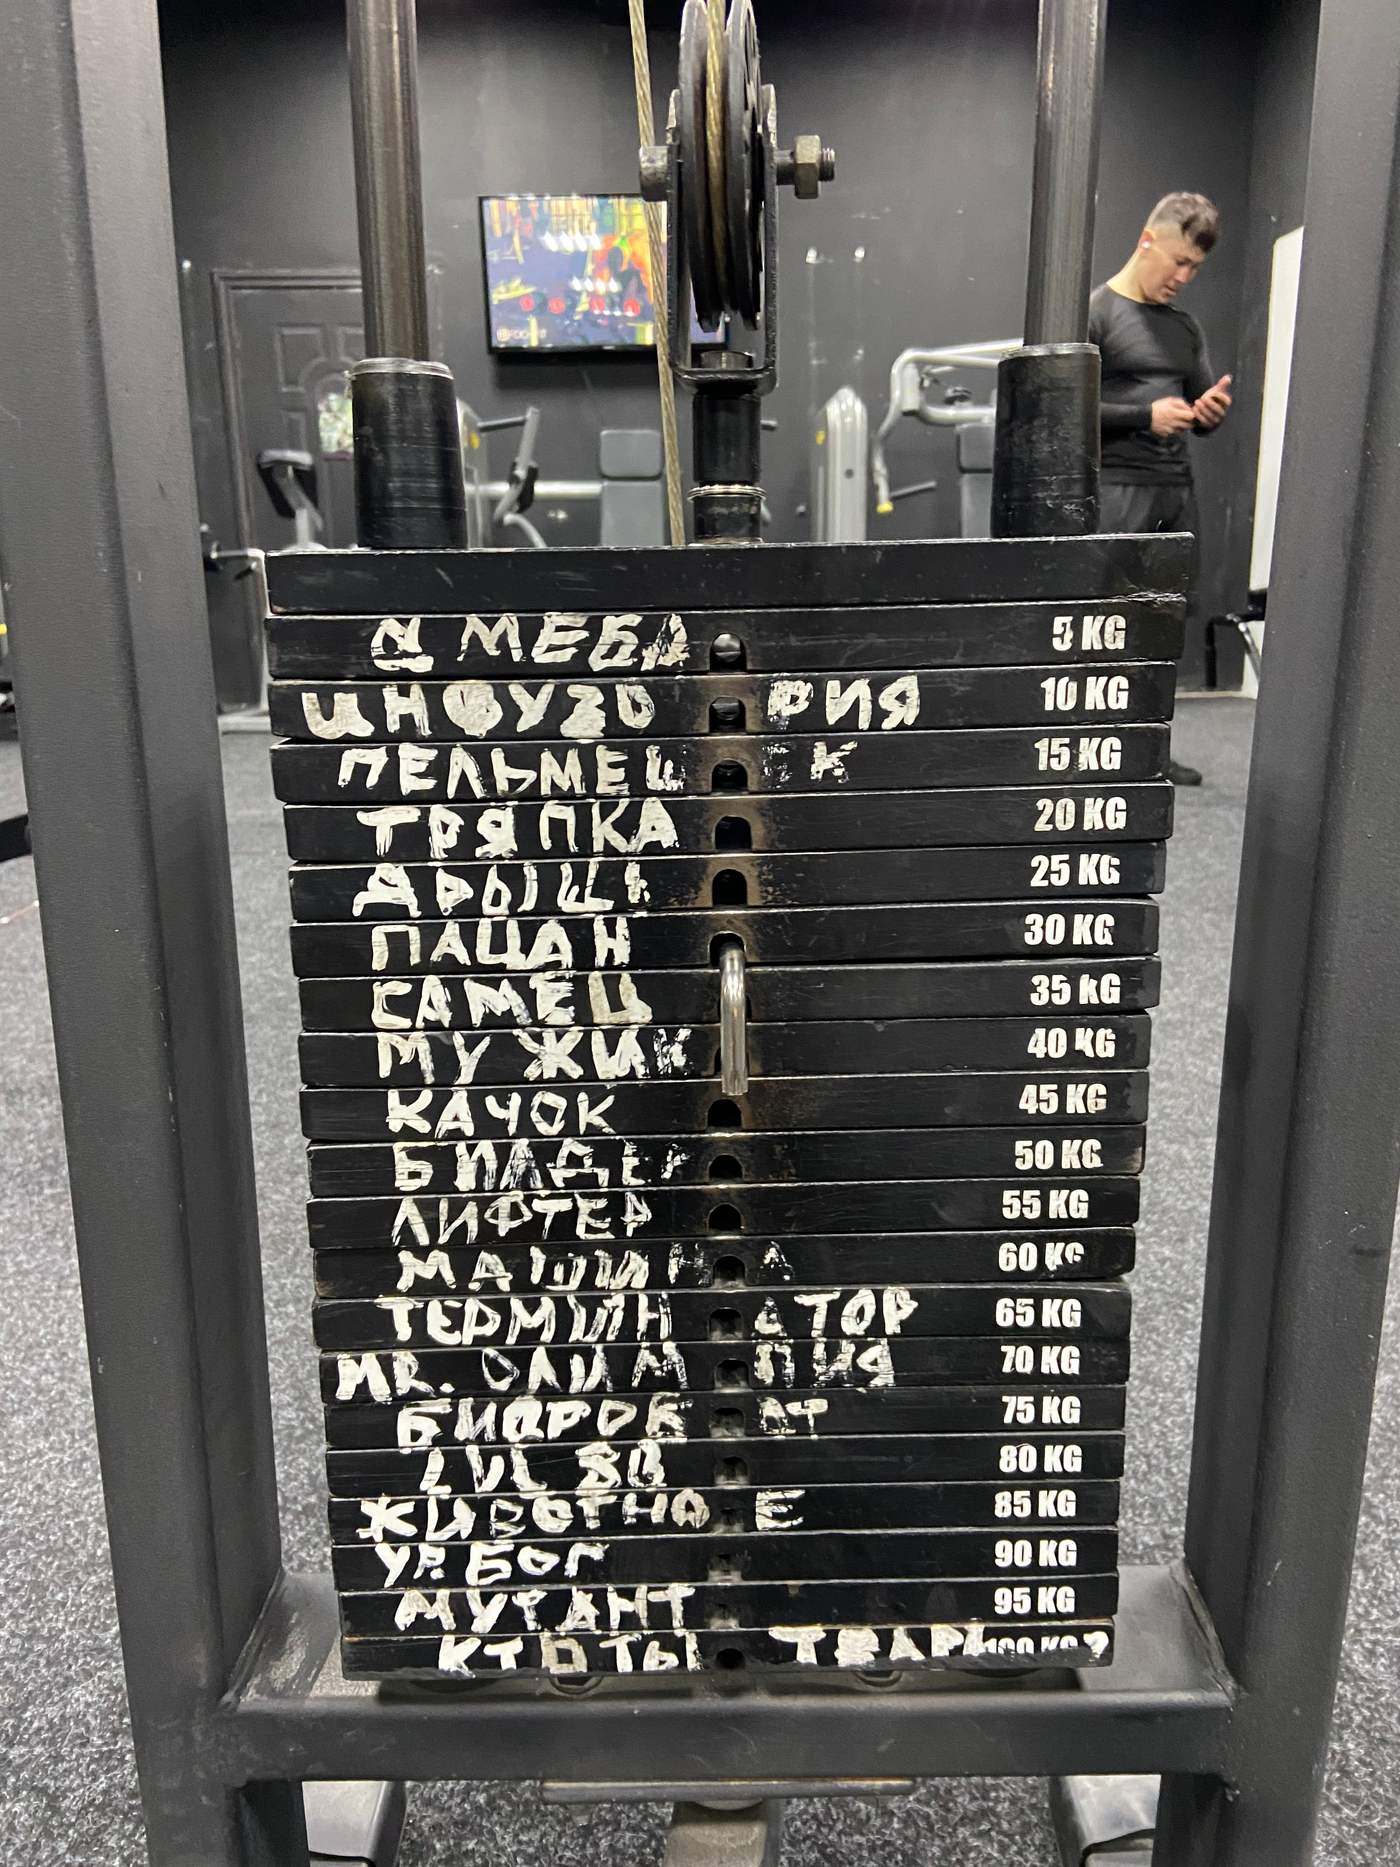 АМЕБА 5 KG
ИНФУЗОРИЯ 10 KG
ПЕЛЬМЕШЕК 15 KG
ТРЯПКА 20 KG
ДРЫЩЬ 25 KG
ПАЦАН 30 KG
САМЕЦ 35 KG
МУЖИК 40 KG
КАЧОК 45 KG
БИЛДЕР 50 KG
ЛИФТЕР 55 KG
МАШИНА 60 KG
ТЕРМИНАТОР 65 KG
MR. ОЛИМПИЯ 70 KG
75 KG
80 KG
ЖИВОТНОЕ 85 KG
90 KG
МУТАНТ 95 KG
КТО ТЫ ТВАРЬ 100 KG ?